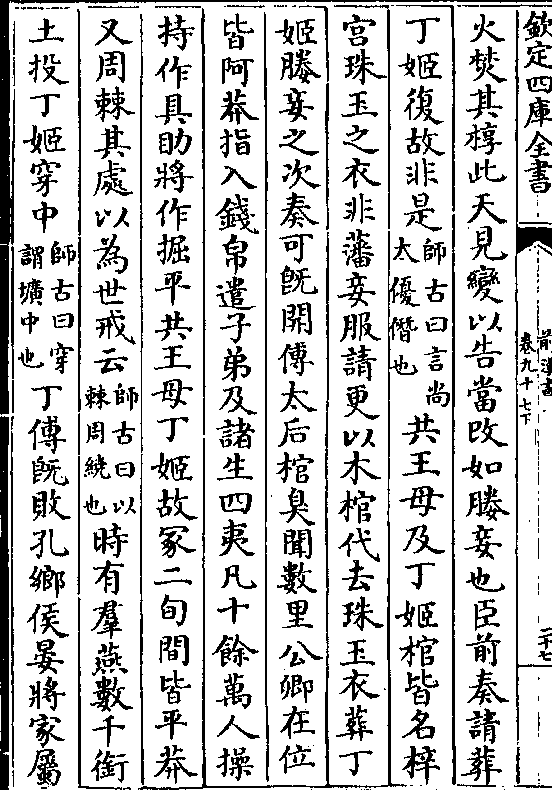 欽定四庫全書
前漢書
卷九十七下
二十七
火焚其椁此天見變以告當改如媵妾也臣前奏請葬
丁姬復故非是師古曰言尚太優僭也共王母及丁姬棺皆名梓
宫珠玉之衣非藩妾服請更以木棺代去珠玉衣葬丁
姬媵妾之次奏可既開傅太后棺臭聞數里公卿在位
皆阿莽指入錢帛遣子弟及諸生四夷凡十餘萬人操
持作具助將作掘平共王母丁姬故冢二旬間皆平莽
又周棘其處以為世戒云師古曰以棘周繞也時有羣燕數千銜
土投丁姬穿中師古曰穿謂壙中也丁傅既敗孔鄉侯晏將家屬